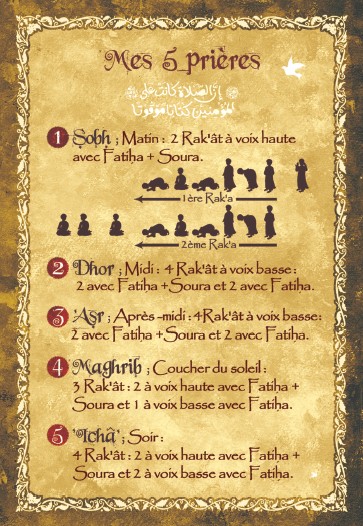 Mes 5 prières
إِنَّ الصَّلَاةَ كَانَتْ عَلَى
الْمُؤْمِنِينَ كِتَابًا مَوْقُوتًا
1 Ṣobḥ ; Matin : 2 Rak'ât à voix haute
avec Fatiḥa + Soura.
1ère Rak'a
2ème Rak'a
2 Dhor ; Midi : 4 Rak'ât à voix basse :
2 avec Fatiḥa +Soura et 2 avec Fatiḥa.
3 'Aṣr ; Après -midi : 4Rak'ât à voix basse:
2 avec Fatiḥa +Soura et 2 avec Fatiḥa.
4 Maghrib ; Coucher du soleil :
3 Rak'ât : 2 à voix haute avec Fatiḥa +
Soura et 1 à voix basse avec Fatiḥa.
5 'Ichâ' ; Soir :
4 Rak'ât : 2 à voix haute avec Fatiḥa +
Soura et 2 à voix basse avec Fatiḥa.